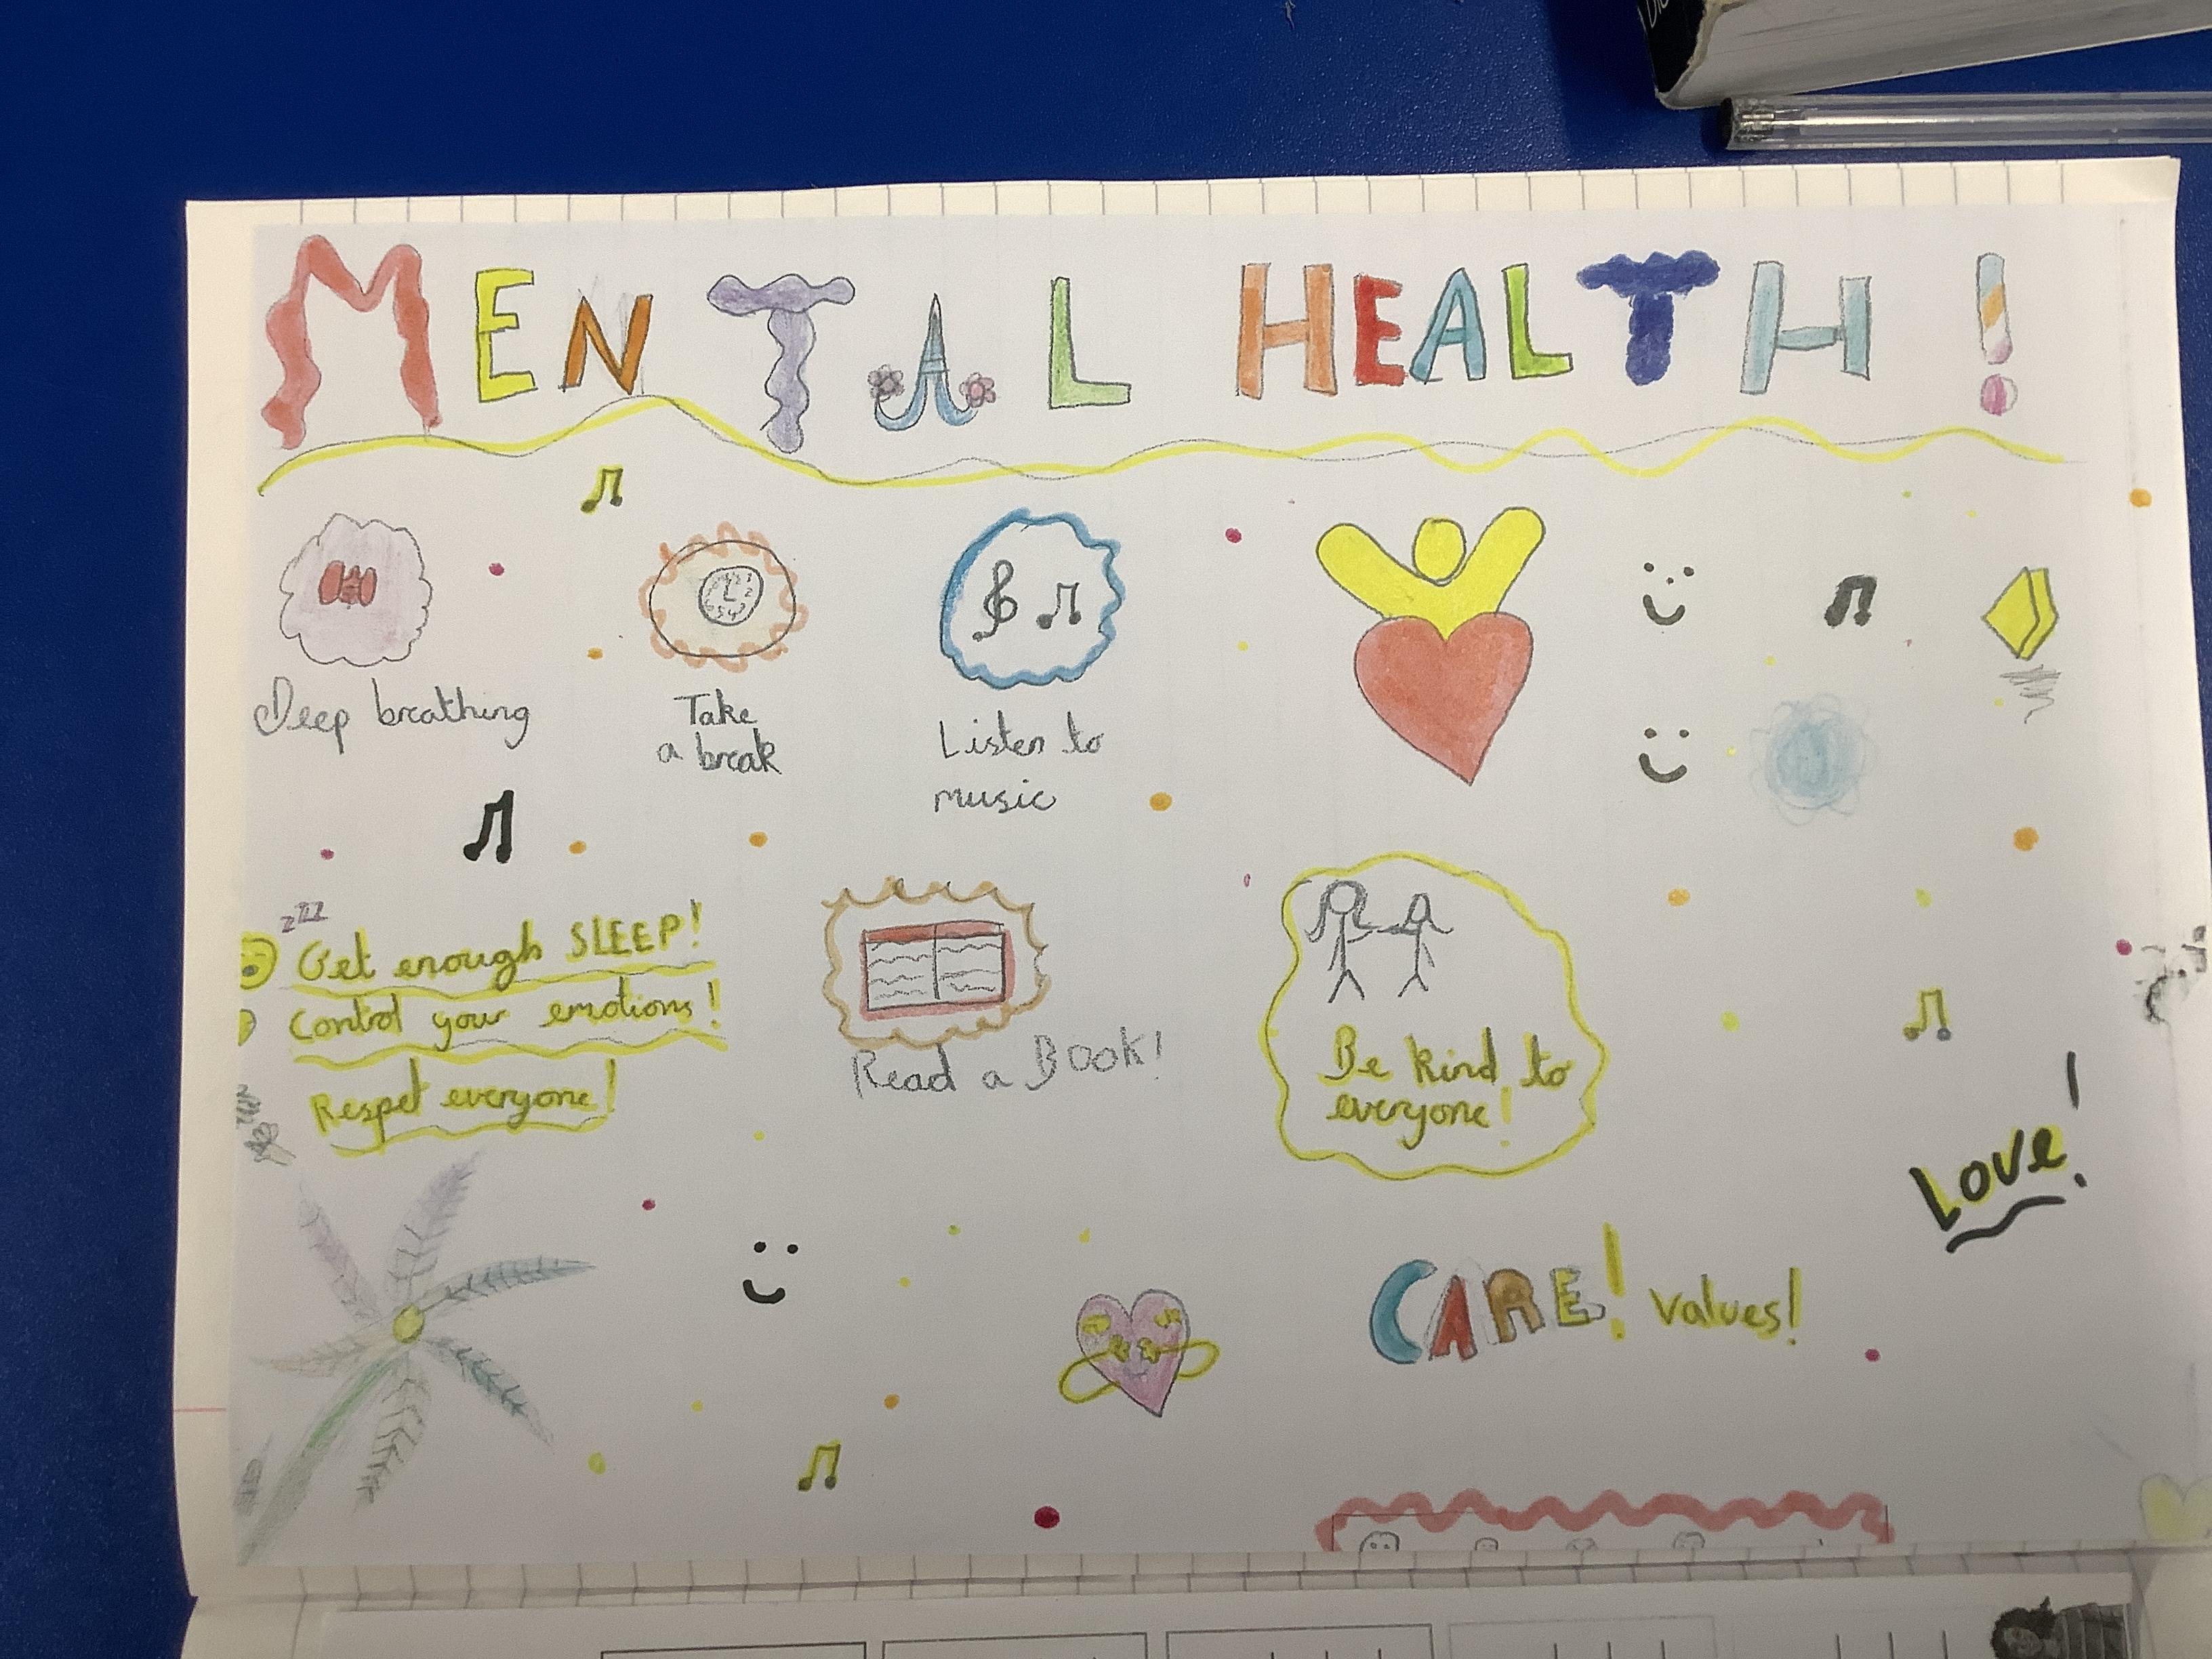 MENTAL HEALTH!
Deep breathing
Take
a break
Listen to
music
zzz
Get enough SLEEP!
Control your emotions!
Respet everyone!
Read a BOOk!
Be kind to
everyone!
Love!
CARE! values!